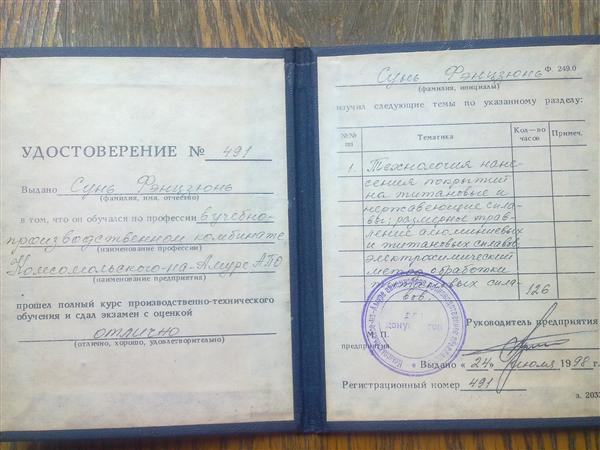 УДОСТОВЕРЕНИЕ № 491
Выдано Сунь Фэнцзюнь
(фамилия, имя, отчество)
в том, что он обучался по профессии в учебно-
производственном комбинате
(наименование профессии)
Комсомольского-на-Амуре АПО
(наименование предприятия)
прошел полный курс производственно-технического
обучения и сдал экзамен с оценкой
отлично
(отлично, хорошо, удовлетворительно)
Ф. 249.0
Сунь Фэнцзюнь
(фамилия, инициалы)
изучил следующие темы по указанному разделу:
№№ пп Тематика Кол—во часов Примеч.
1. Технология нане-
сения покрытий
на титановые и
нержавеющие спла-
вы; размерное трав-
ление алюминиевых
и титановых сплавов
электрохимический
метод обработки
титановых спла-
вов. 126
Руководитель предприятия
М. П.
предприятия
Выдано «24» июля 1998 г.
Регистрационный номер 491
а. 2033